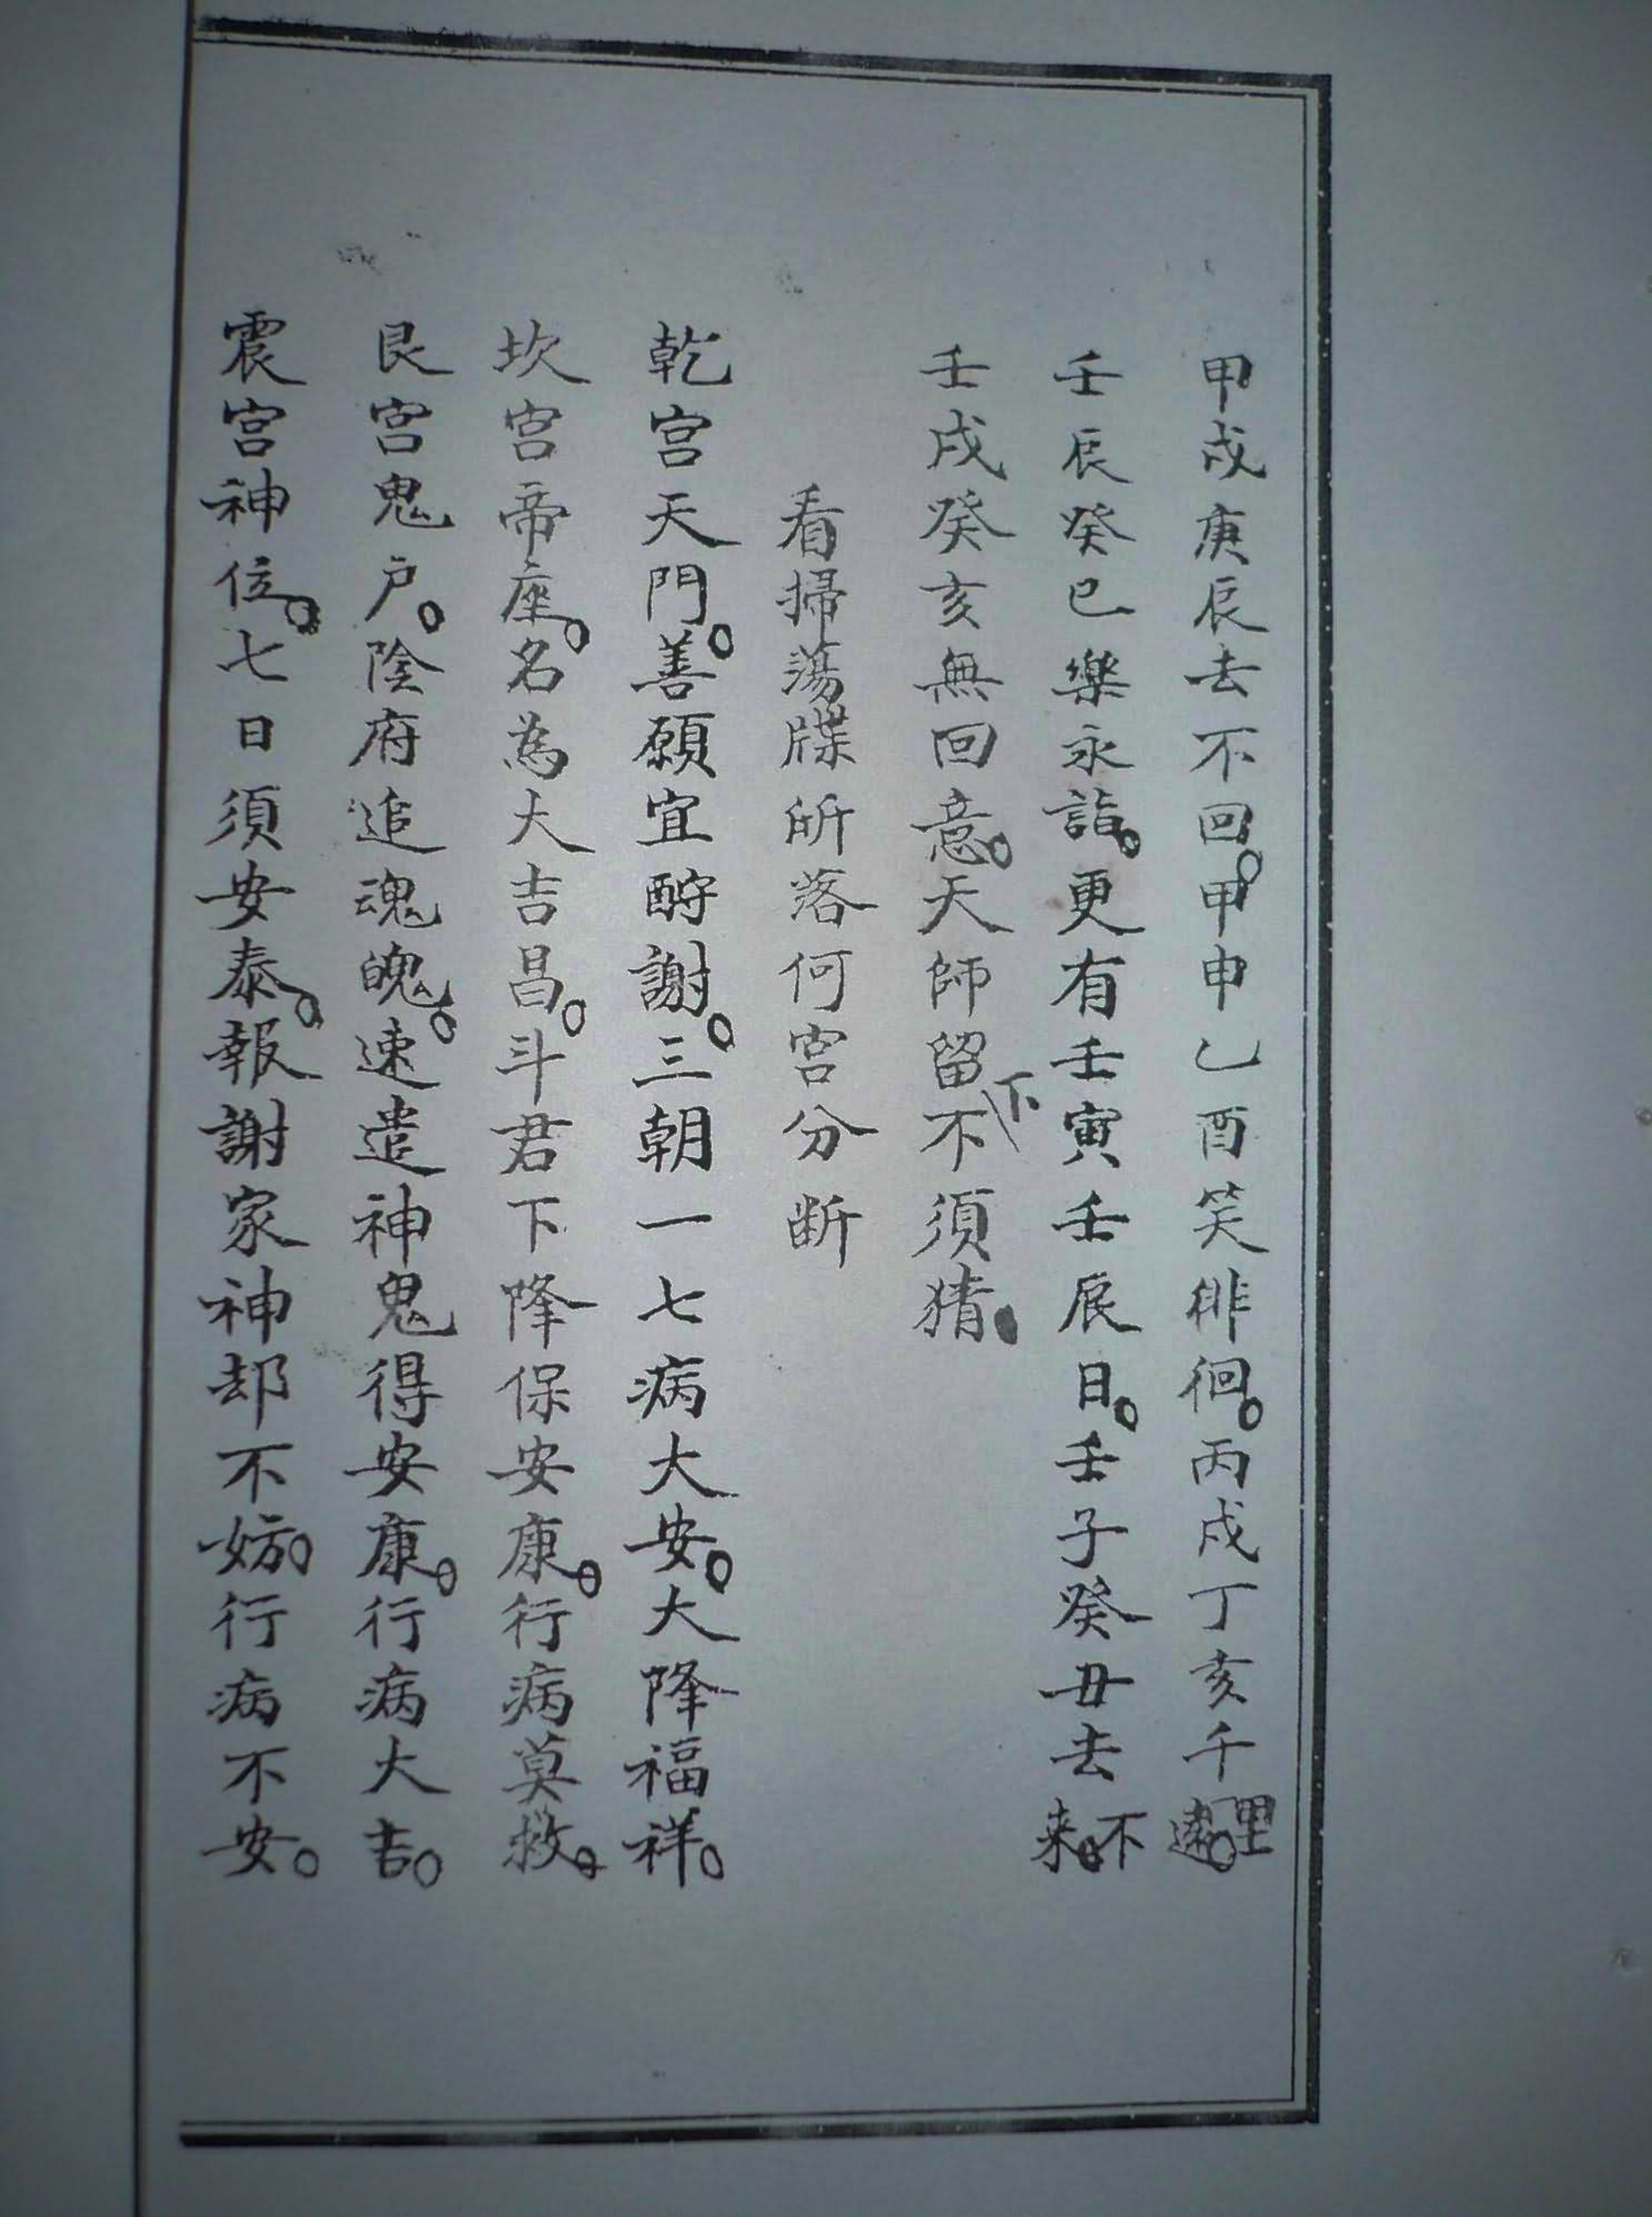 甲戌庚辰去不回。甲申乙酉笑徘徊。丙戌丁亥千里遠。
壬辰癸巳樂永詣。更有壬寅壬辰日。壬子癸丑去不来。
壬戌癸亥無回意。天師留下不須猜。
看掃蕩牒所落何宮分断
乾宮天門。善願宜酧謝。三朝一七病大安。大降福祥。
坎宮帝座。名為大吉昌。斗君下降保安康。行病莫救。
艮宮鬼户。陰府追魂魄。速遣神鬼得安康。行病大吉。
震宮神位。七日須安泰。報謝家神却不妨。行病不安。